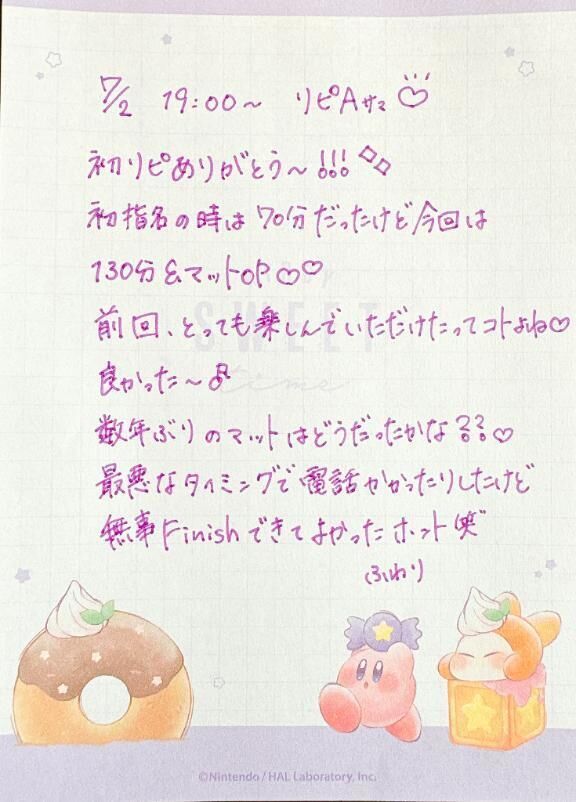 7/2 19:00〜 リピAサマ♡
初リピありがとう〜!!!
初指名の時は70分だったけど今回は
130分&マットOP♡♡
SWEET
前回、とっても楽しんでいただけたってコトよね♡
time
良かった〜♪
数年ぶりのマットはどうだったかな??♡
最悪なタイミングで電話かかったりしたけど
無事Finishできてよかったホント(笑)
ふわり
©Nintendo / HAL Laboratory, Inc.